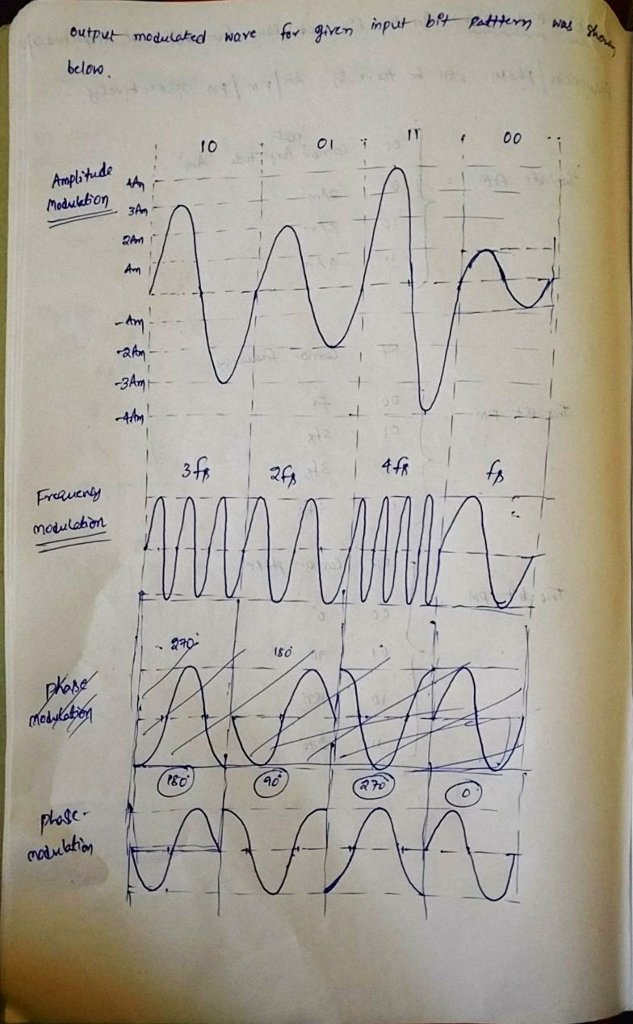 output modulated wave for given input bit pattern was shown
below.
10 01 11 00
Amplitude
Modulation
4Am
3Am
2Am
Am
-Am
-2Am
-3Am
-4Am
3fβ 2fβ 4fβ fβ
Frequency
modulation
270° 180°
phase
modulation
180° 90° 270° 0°
phase-
modulation